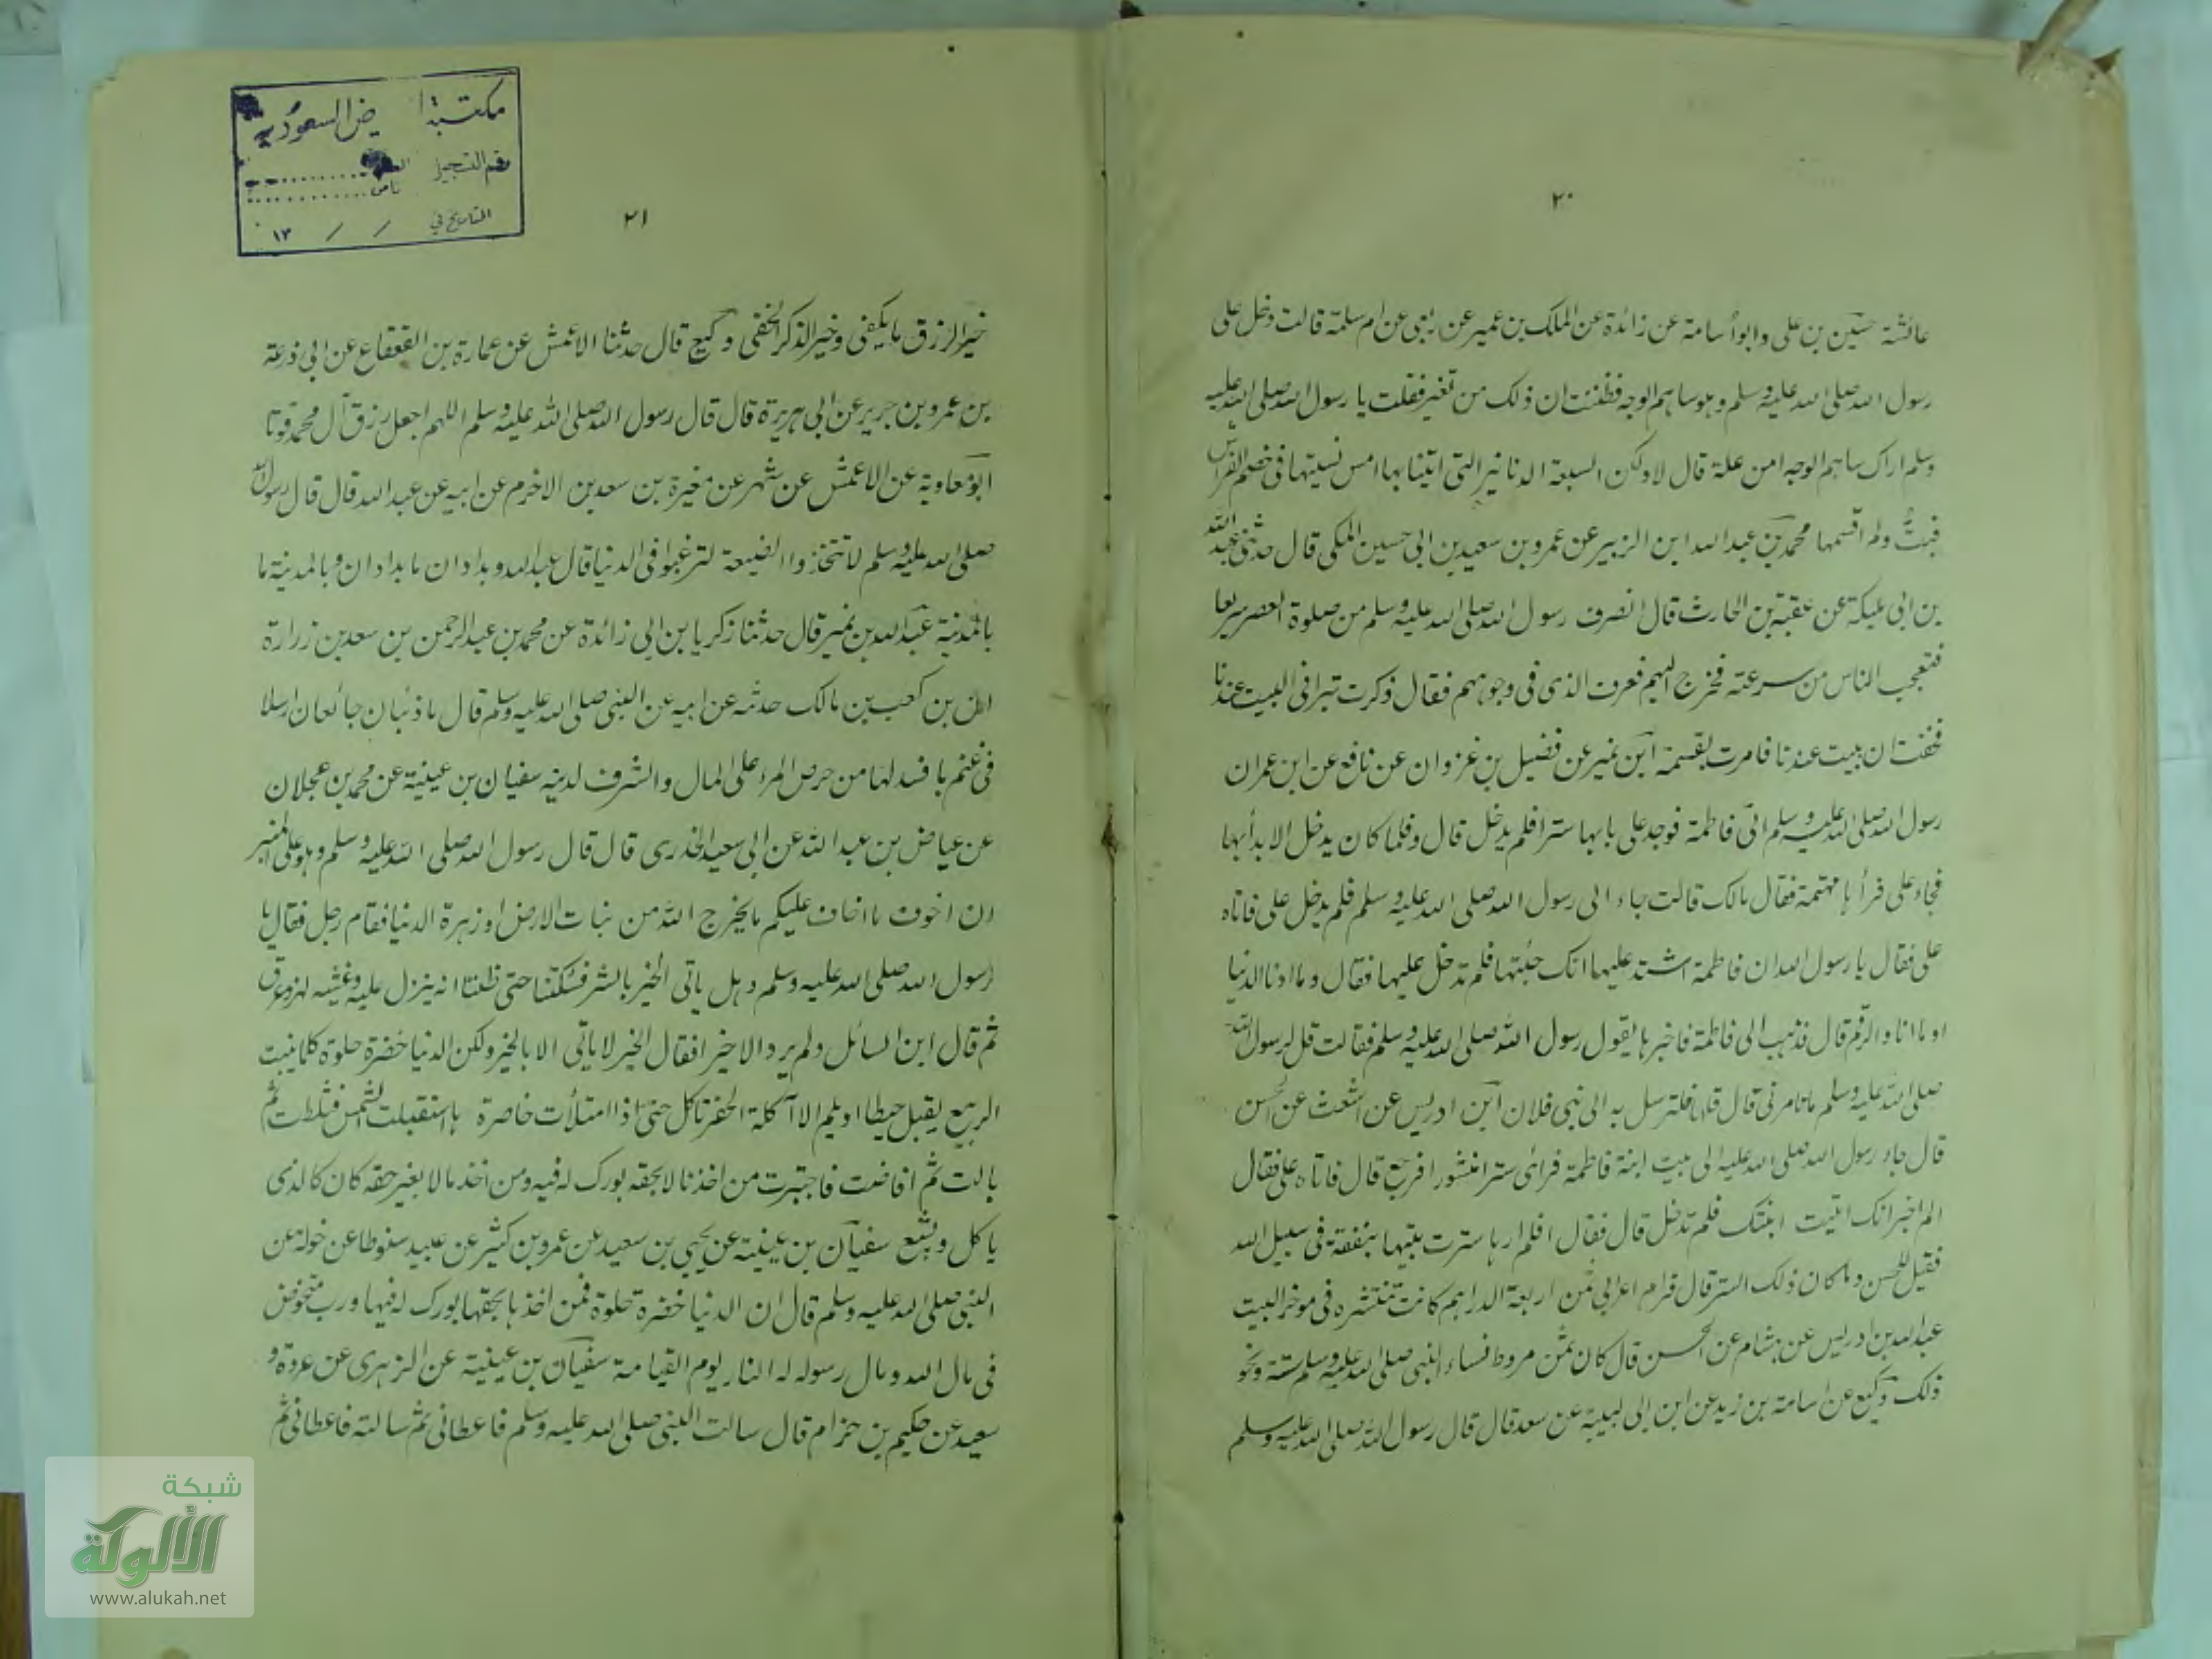 ٢٠
عائشة حسين بن على وابو أسامة عن زائدة عن الملك بن عمير عن ربعى عن ام سلمة قالت دخل على
رسول الله صلى الله عليه وسلم وهو ساهم الوجه فظننت ان ذلك من تغير فقلت يا رسول الله صلى الله عليه
وسلم اراك ساهم الوجه امن علة قال لا ولكن السبعة الدنانير التى اتينا بها امس نسيتها فى خصم الفراش
فبتُّ ولم اقسمها محمد بن عبد الله ابن الزبير عن عمرو بن سعيد بن ابى حسين المكى قال حدثنى عبد الله
بن ابى مليكة عن عقبة بن الحارث قال انصرف رسول الله صلى الله عليه وسلم من صلوة العصر سريعا
فتعجب الناس من سرعته فخرج اليهم فعرف الذى فى وجوههم فقال ذكرت تبرا فى البيت عندنا
فخفت ان يبيت عندنا فامرت بقسمة ابن نمير عن فضيل بن غزوان عن نافع عن ابن عمر ان
رسول الله صلى الله عليه وسلم اتى فاطمة فوجد على بابها سترا فلم يدخل قال وقلما كان يدخل الا بدأ بها
فجاء على فرأها مهتمة فقال مالك قالت جاء الى رسول الله صلى الله عليه وسلم فلم يدخل على فاتاه
على فقال يا رسول الله ان فاطمة اشتد عليها انك جئتها فلم تدخل عليها فقال وما انا والدنيا
او ما انا والرقم قال فذهب الى فاطمة فاخبرها بقول رسول الله صلى الله عليه وسلم فقالت قل لرسول الله
صلى الله عليه وسلم ما تامرنى قال قل لها فلترسل به الى بنى فلان ابن ادريس عن اشعث عن الحسن
قال جاء رسول الله صلى الله عليه الى بيت ابنة فاطمة فرأى سترا منشورا فرجع قال فاتاه على فقال
الم اخبر انك اتيت ابنتك فلم تدخل قال فقال افلم ارها سترت بيتها بنفقة فى سبيل الله
فقيل للحسن وما كان ذلك الستر قال قرام اعرابى ثمن اربعة الدراهم كانت تنشره فى موخر البيت
عبد الله بن ادريس عن هشام عن الحسن قال كان ثمن مروط نساء النبى صلى الله عليه وسلم ستة ونحو
ذلك وكيع عن اسامة بن زيد عن ابن ابى لبيبة عن سعد قال قال رسول الله صلى الله عليه وسلم
مكتبة الرياض السعودية
رقم التسجيل
التاريخ في / / ١٣
٢١
خير الرزق ما يكفى وخير الذكر الخفى وكيع قال حدثنا الاعمش عن عمارة بن القعقاع عن ابى ذرعة
بن عمرو بن جرير عن ابى هريرة قال قال رسول الله صلى الله عليه وسلم اللهم اجعل رزق آل محمد قوتا
ابو معاوية عن الاعمش عن شهر عن مغيرة بن سعد بن الاخرم عن ابيه عن عبد الله قال قال رسول الله
صلى الله عليه وسلم لا تتخذوا الضيعة لترغبوا فى الدنيا قال عبد الله وبداذان ما بداذان وبالمدينة ما
بالمدينة عبد الله بن نمير قال حدثنا زكريا بن ابى زائدة عن محمد بن عبد الرحمن بن سعد بن زرارة
ان بن كعب بن مالك حدثه عن ابيه عن النبى صلى الله عليه وسلم قال ما ذئبان جائعان ارسلا
فى غنم بافسد لها من حرص المرء على المال والشرف لدينه سفيان بن عيينة عن محمد بن عجلان
عن عياض بن عبد الله عن ابى سعيد الخدرى قال قال رسول الله صلى الله عليه وسلم وهو على المنبر
ان اخوف ما اخاف عليكم ما يخرج الله من نبات الارض او زهرة الدنيا فقام رجل فقال يا
رسول الله صلى الله عليه وسلم وهل ياتى الخير بالشر فسكتنا حتى ظننا انه ينزل عليه وغشيه بهر وعرق
ثم قال اين السائل ولم يرد الا خيرا فقال الخير لا ياتى الا بالخير ولكن الدنيا خضرة حلوة كلما ينبت
الربيع يقبل حبطا او يلم الا آكلة الخضر تاكل حتى اذا امتلأت خاصرة ها استقبلت الشمس فثلطت ثم
بالت ثم افاضت فاجترت من اخذ مالا بحقه بورك له فيه ومن اخذ مالا بغير حقه كان كالذى
ياكل ويشبع سفيان بن عيينة عن يحيى بن سعيد عن عمرو بن كثير عن عبيد سنوطا عن خولة عن
النبى صلى الله عليه وسلم قال ان الدنيا خضرة حلوة فمن اخذها بحقها بورك له فيها ورب متخوض
فى مال الله ومال رسوله له النار يوم القيامة سفيان بن عيينة عن الزهرى عن عروة و
سعيد عن حكيم بن حزام قال سالت النبى صلى الله عليه وسلم فاعطانى ثم سالته فاعطانى ثم
شبكة
الألوكة
www.alukah.net